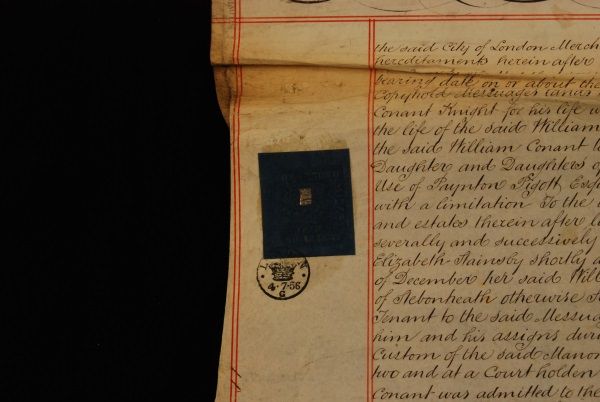 the said City of London Merch
hereditaments herein after
bearing date on or about the
Copyhold Messuages lands
Conant Knight for his life
the life of the said William
the said William Conant
Daughter and Daughters of
Use of Paynton Pigott Esq
with a limitation To the
and estates therein after
severally and successively
Elizabeth Stainsby shortly
of December her said Will
of Stebonheath otherwise
Tenant to the said Messua
him and his assigns duri
Custom of the said Manor
two and at a Court holden
Conant was admitted to the
4·7·56
G